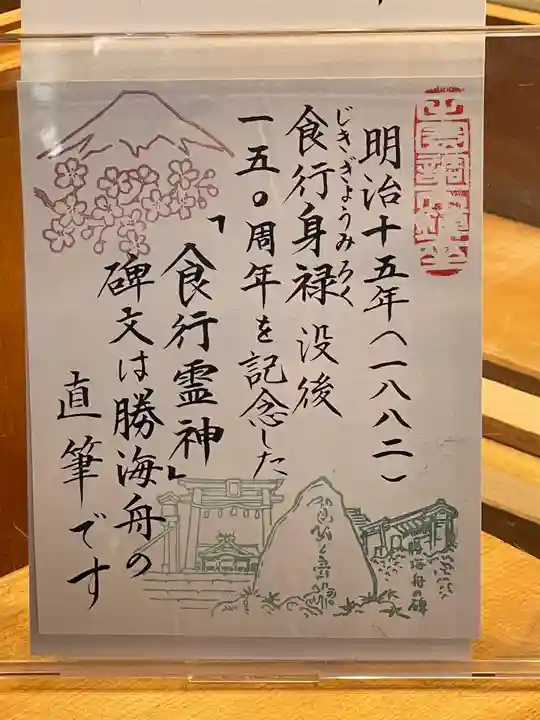 明治十五年(一八八二)
じきぎょうみろく
食行身禄没後
一五〇周年を記念した
「食行霊神」
碑文は勝海舟の
直筆です
勝海舟の碑